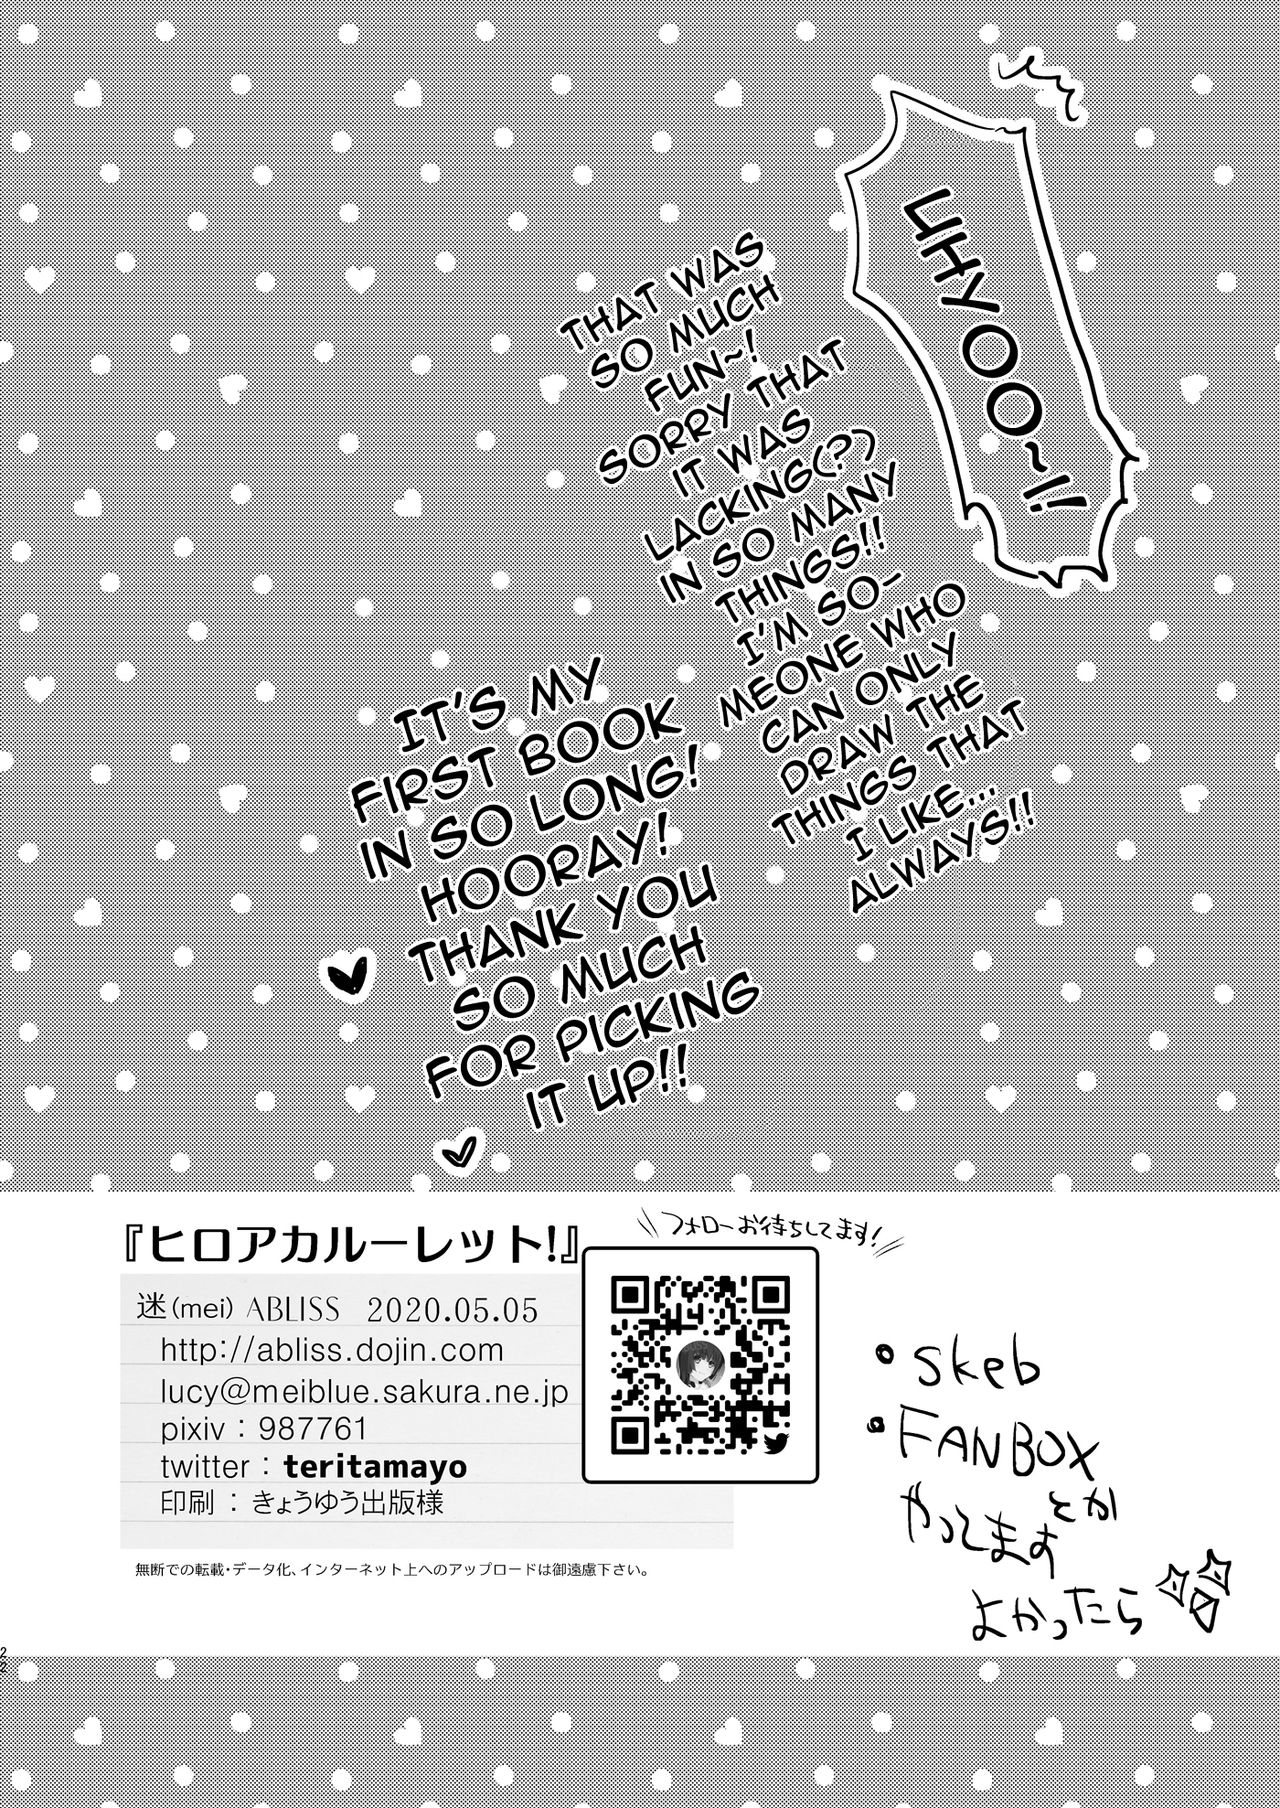 UHYOO~!!
THAT WAS
SO MUCH
FUN~!
SORRY THAT
IT WAS
LACKING(?)
IN SO MANY
THINGS!!
I'M SO-
MEONE WHO
CAN ONLY
DRAW THE
THINGS THAT
I LIKE...
ALWAYS!!
IT'S MY
FIRST BOOK
IN SO LONG!
HOORAY!
THANK YOU
SO MUCH
FOR PICKING
IT UP!!
『ヒロアカルーレット!』
迷(mei) ABLISS 2020.05.05
http://abliss.dojin.com
lucy@meiblue.sakura.ne.jp
pixiv : 987761
twitter : teritamayo
印刷 : きょうゆう出版様
無断での転載・データ化、インターネット上へのアップロードは御遠慮下さい。
フォローお待ちしてます!
・skeb
・FANBOX
とか
やってます
よかったら
22